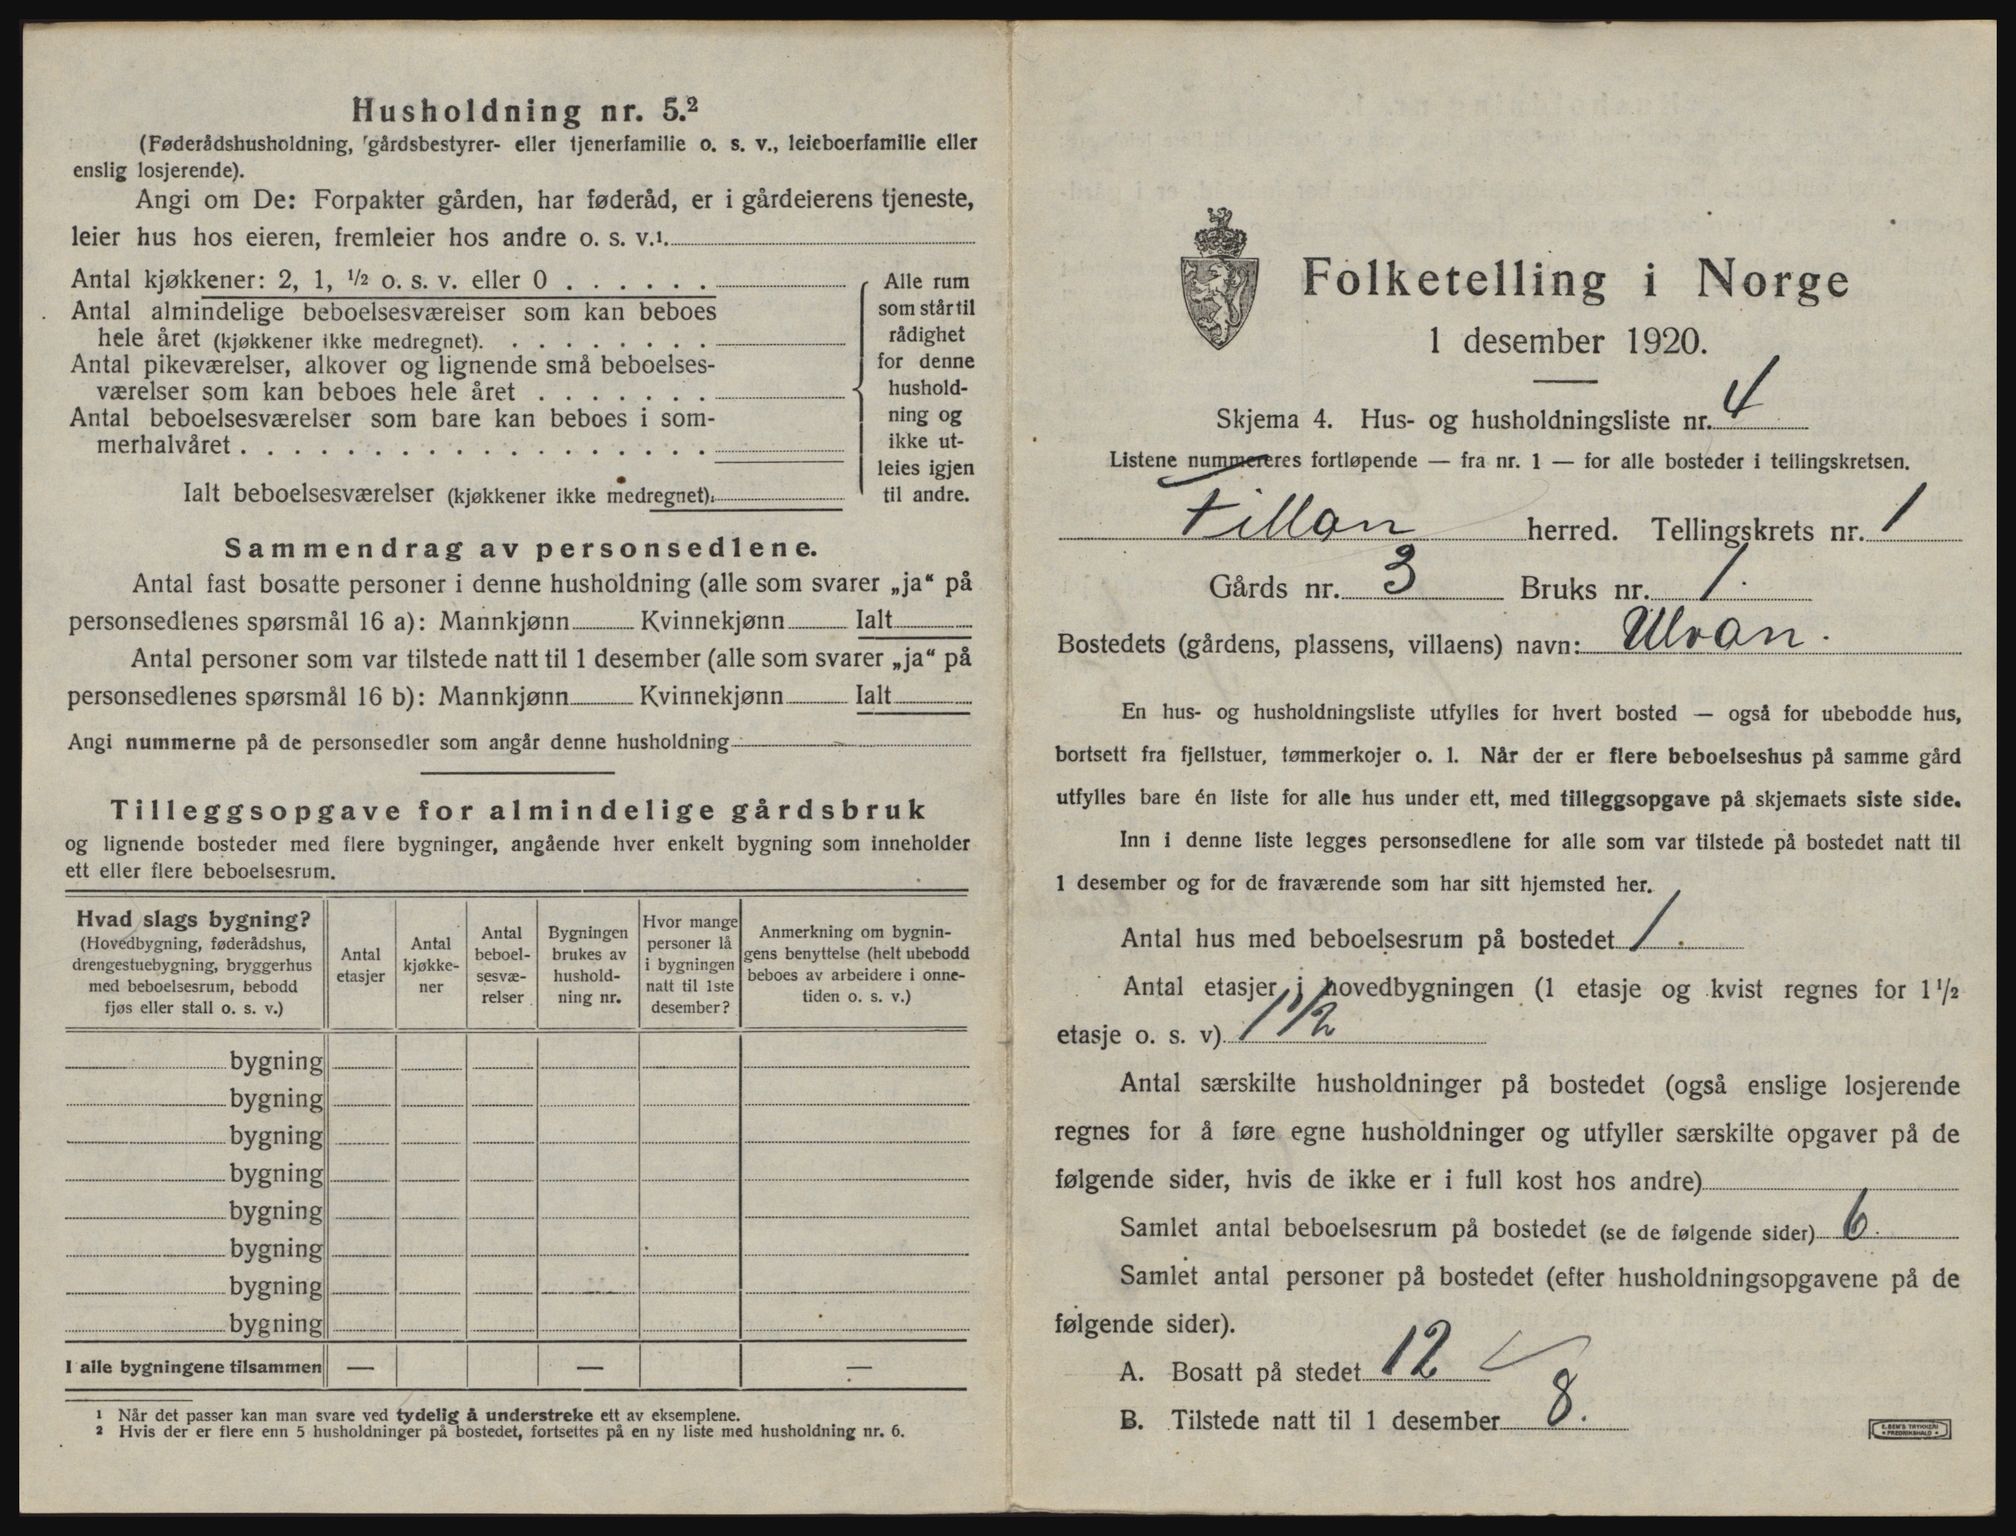 Husholdning nr. 5.²
(Føderådshusholdning, gårdsbestyrer- eller tjenerfamilie o. s. v., leieboerfamilie eller
enslig losjerende).
Angi om De: Forpakter gården, har føderåd, er i gårdeierens tjeneste,
leier hus hos eieren, fremleier hos andre o. s. v.¹.
Antal kjøkkener: 2, 1, ½ o. s. v. eller 0 . . . . . .
Antal almindelige beboelsesværelser som kan beboes
hele året (kjøkkener ikke medregnet). . . . . . . . .
Antal pikeværelser, alkover og lignende små beboelses-
værelser som kan beboes hele året . . . . . . .
Antal beboelsesværelser som bare kan beboes i som-
merhalvåret . . . . . . . . . . . . . . . . . .
Ialt beboelsesværelser (kjøkkener ikke medregnet):
Alle rum
som står til
rådighet
for denne
hushold-
ning og
ikke ut-
leies igjen
til andre.
Sammendrag av personsedlene.
Antal fast bosatte personer i denne husholdning (alle som svarer „ja“ på
personsedlenes spørsmål 16 a): Mannkjønn Kvinnekjønn Ialt
Antal personer som var tilstede natt til 1 desember (alle som svarer „ja“ på
personsedlenes spørsmål 16 b): Mannkjønn Kvinnekjønn Ialt
Angi nummerne på de personsedler som angår denne husholdning
Tilleggsopgave for almindelige gårdsbruk
og lignende bosteder med flere bygninger, angående hver enkelt bygning som inneholder
ett eller flere beboelsesrum.
Hvad slags bygning?
(Hovedbygning, føderådshus,
drengestuebygning, bryggerhus
med beboelsesrum, bebodd
fjøs eller stall o. s. v.)
Antal
etasjer
Antal
kjøkke-
ner
Antal
beboel-
sesvæ-
relser
Bygningen
brukes av
hushold-
ning nr.
Hvor mange
personer lå
i bygningen
natt til 1ste
desember?
Anmerkning om bygnin-
gens benyttelse (helt ubebodd
beboes av arbeidere i onne-
tiden o. s. v.)
bygning
bygning
bygning
bygning
bygning
bygning
bygning
bygning
I alle bygningene tilsammen — — —
¹ Når det passer kan man svare ved tydelig å understreke ett av eksemplene.
² Hvis der er flere enn 5 husholdninger på bostedet, fortsettes på en ny liste med husholdning nr. 6.
Folketelling i Norge
1 desember 1920.
Skjema 4. Hus- og husholdningsliste nr. 4
Listene nummereres fortløpende — fra nr. 1 — for alle bosteder i tellingskretsen.
Fillan herred. Tellingskrets nr. 1
Gårds nr. 3 Bruks nr. 1.
Bostedets (gårdens, plassens, villaens) navn: Ulvan.
En hus- og husholdningsliste utfylles for hvert bosted — også for ubebodde hus,
bortsett fra fjellstuer, tømmerkojer o. l. Når der er flere beboelseshus på samme gård
utfylles bare én liste for alle hus under ett, med tilleggsopgave på skjemaets siste side.
Inn i denne liste legges personsedlene for alle som var tilstede på bostedet natt til
1 desember og for de fraværende som har sitt hjemsted her.
Antal hus med beboelsesrum på bostedet 1.
Antal etasjer i hovedbygningen (1 etasje og kvist regnes for 1½
etasje o. s. v) 1 1/2
Antal særskilte husholdninger på bostedet (også enslige losjerende
regnes for å føre egne husholdninger og utfyller særskilte opgaver på de
følgende sider, hvis de ikke er i full kost hos andre)
Samlet antal beboelsesrum på bostedet (se de følgende sider) 6.
Samlet antal personer på bostedet (efter husholdningsopgavene på de
følgende sider).
A. Bosatt på stedet 12
B. Tilstede natt til 1 desember 8.
E. SEM'S TRYKKERI
FREDRIKSHALD